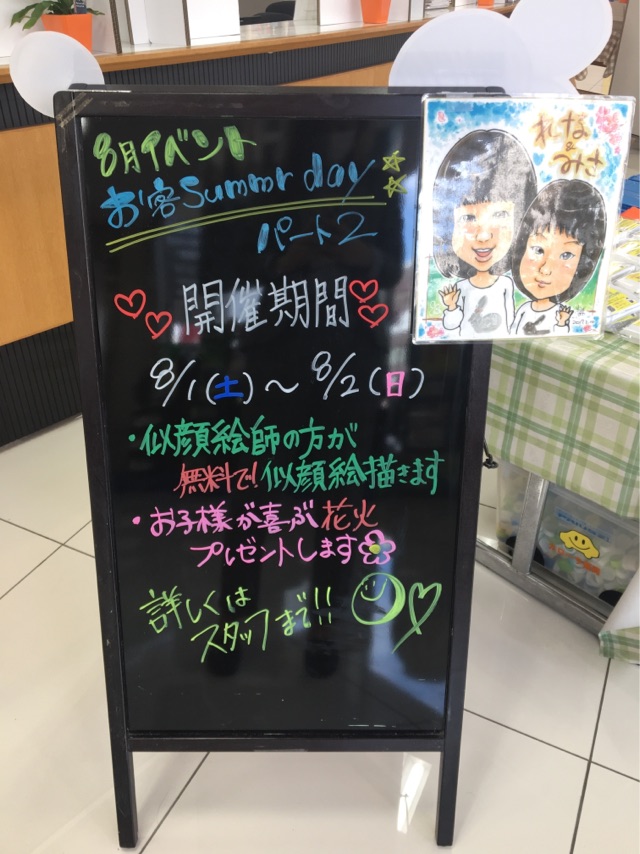 8月イベント
お客Summr day
パート2
開催期間
8/1(土)～8/2(日)
・似顔絵師の方が
無料で!似顔絵描きます
・お子様が喜ぶ花火
プレゼントします
詳しくは
スタッフまで!!
れな
&
みさ